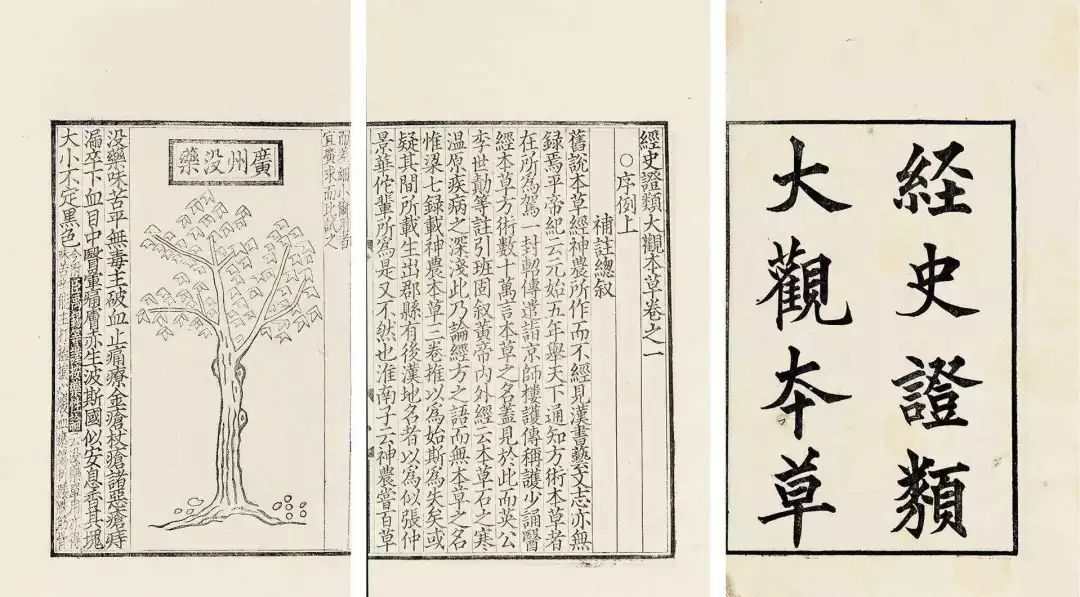 経史證類
大觀本草
經史證類大觀本草卷之一
○序例上
補註總叙
舊說本草經神農所作而不經見漢書藝文志亦無
録焉平帝紀云元始五年舉天下通知方術本草者
在所為駕一封軺傳遣詣京師樓護傳稱護少誦醫
經本草方術數十萬言本草之名蓋見於此而英公
李世勣等註引班固叙黄帝內外經云本草石之寒
温原疾病之深淺此乃論經方之語而無本草之名
惟梁七録載神農本草三卷推以為始斯為失矣或
疑其間所載生出郡縣有後漢地名者以為似張仲
景華佗輩所為是又不然也淮南子云神農嘗百草
廣州没藥
没藥味苦平無毒主破血止痛療金瘡杖瘡諸惡瘡痔
漏卒下血目中瞖暈痛膚赤生波斯國似安息香其塊
大小不定黑色